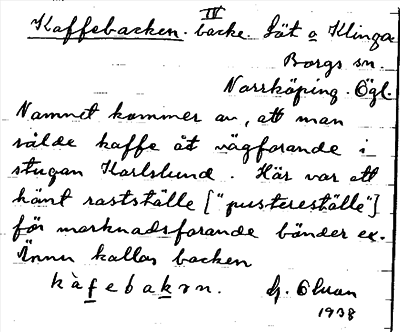 IV
Kaffebacken. backe. Löt o Klinga
Borgs sn.
Norrköping. Ögl.
Namnet kommer av, att man
sålde kaffe åt vägfarande i
stugan Karlslund. Här var ett
känt rastställe ["pustereställe"]
för marknadsfarande bönder ex.
Ännu kallas backen
kàfebakɤn.
1938